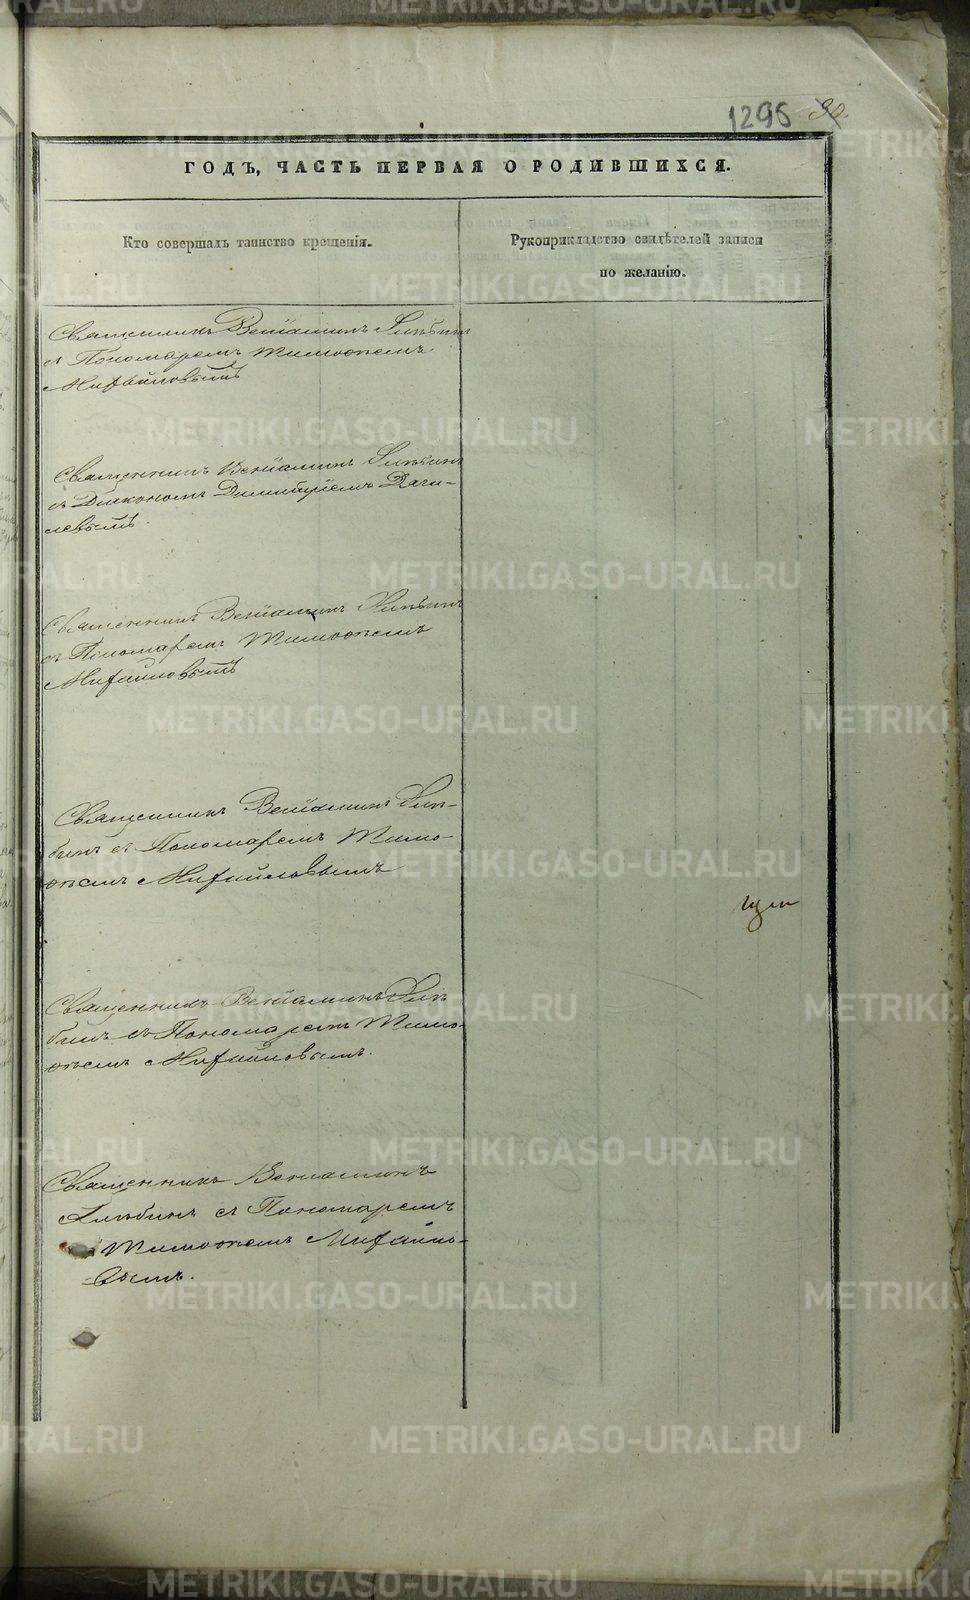 1295 90.
ГОДЪ, ЧАСТЬ ПЕРВАЯ О РОДИВШИХСЯ.
Кто совершалъ таинство крещенія.
Рукоприкладство свидѣтелей записи
по желанію.
Священникъ Веніаминъ
съ Пономаремъ Тимоѳеемъ
Михайловымъ
Священникъ Веніаминъ
съ Діакономъ Димитріемъ
Священникъ Веніаминъ
съ Пономаремъ Тимоѳеемъ
Михайловымъ
Священникъ Веніаминъ
бинъ съ Пономаремъ Тимо-
ѳеемъ Михайловымъ
Священникъ Веніаминъ
бинъ съ Пономаремъ Тимо-
ѳеемъ Михайловымъ.
Священникъ Веніаминъ
съ Пономаремъ
Тимоѳеемъ Михайло-
-вымъ.
METRIKI.GASO-URAL.RU